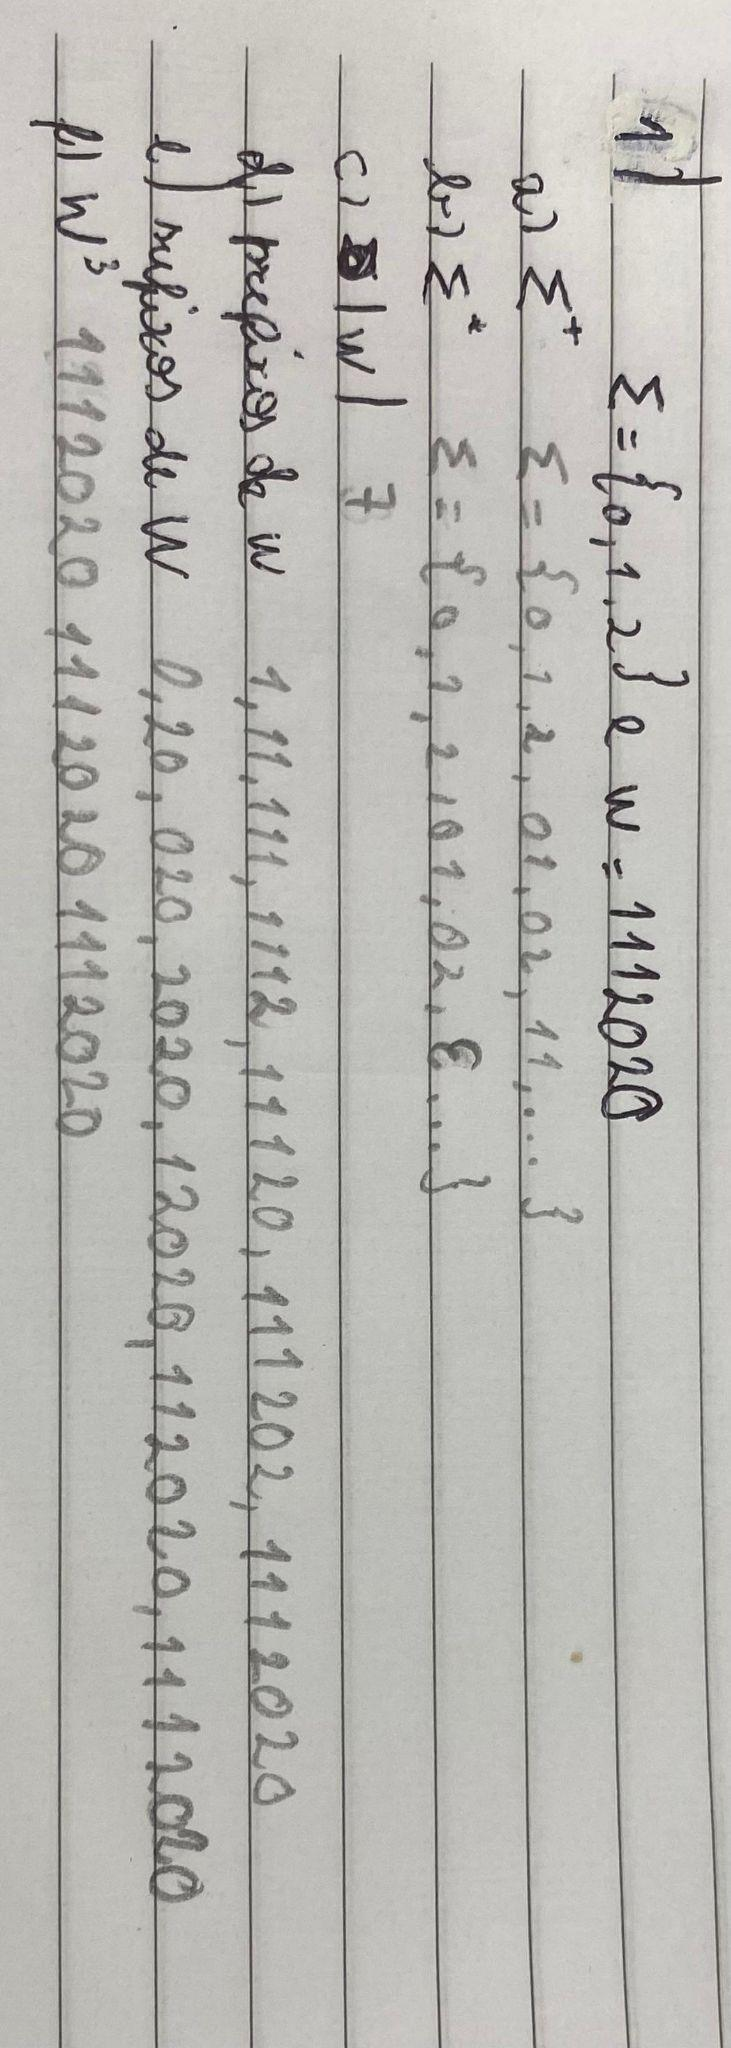 1) Σ = {0, 1, 2} e w = 1112020
a) Σ⁺ Σ = {0, 1, 2, 01, 02, 11, ...}
b) Σ* Σ = {0, 1, 2, 01, 02, ε ...}
c) |w| 7
d) prefixos de w 1, 11, 111, 1112, 11120, 111202, 1112020
e) sufixos de W 0, 20, 020, 2020, 12020, 112020, 1112020
f) W³ 1112020 1112020 1112020